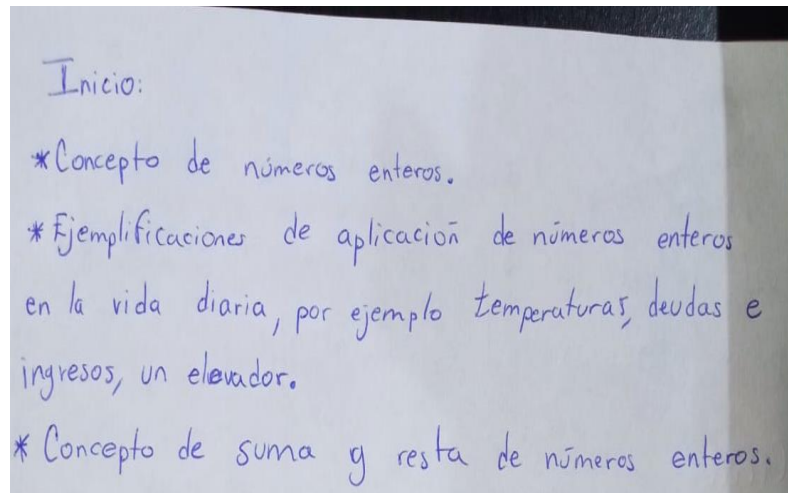 Inicio:
*Concepto de números enteros.
*Ejemplificaciones de aplicación de números enteros
en la vida diaria, por ejemplo temperaturas, deudas e
ingresos, un elevador.
* Concepto de suma y resta de números enteros.